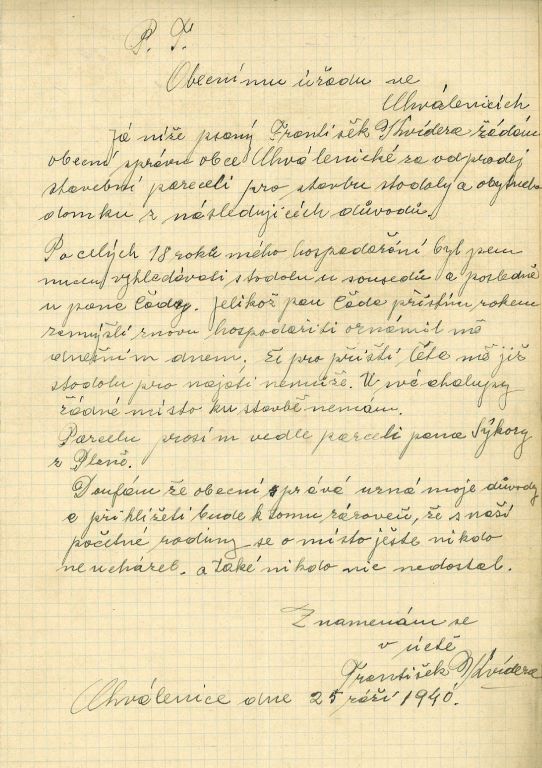 P. T.
Obecnímu úřadu ve
Chválenicích
Já níže psaný František Skvídera žádám
obecní správu obce Chválenické za vodprodej
stavební parceli pro stavbu stodoly a obytného
domku z následujících důvodů.
Po celých 18 roků mého hospodaření byl jsem
nucen vyhledávati stodolu u sousedů a posledně
u pana Čady. Jelikož pan Čada příštím rokem
zamýšlí znovu hospodařiti oznámil mě
dnešním dnem. Že pro příští léta mě již
stodolu pro najati nemůže. U své chalupy
žádné místo ku stavbě nemám.
Parcelu prosím vedle parceli pana Sýkory
z Plzně.
Doufám že obecní správa uzná moje důvody
a přikližeti bude k tomu zároveň, že z naší
početné rodiny se o místo ješte nikdo
neucházel. a také nikdo nic nedostal.
Znamenám se
v úctě
František Skvídera
Chválenice dne 25 září 1940.